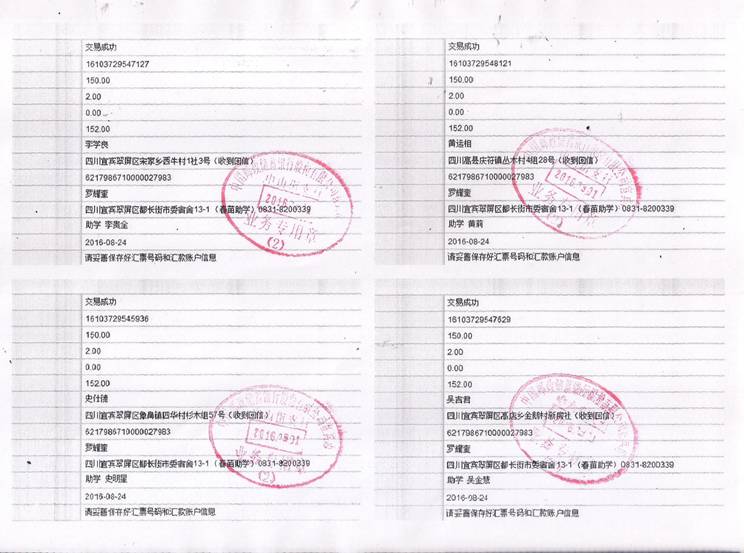 交易成功
16103729547127
150.00
2.00
0.00
152.00
李学良
四川宜宾翠屏区宋家乡西牛村1社3号(收到回信)
6217986710000027983
罗耀奎
四川宜宾翠屏区都长街市委宿舍13-1 (春苗助学) 0831-8200339
助学 李贵全
2016-08-24
请妥善保存好汇票号码和汇款账户信息
2016.0901
业务专用章
(2)
交易成功
16103729548121
150.00
2.00
0.00
152.00
黄运相
四川高县庆符镇丛木村4组28号(收到回信)
6217986710000027983
罗耀奎
四川宜宾翠屏区都长街市委宿舍13-1 (春苗助学) 0831-8200339
助学 黄莉
2016-08-24
请妥善保存好汇票号码和汇款账户信息
2016.0901
业务专用章
(2)
交易成功
16103729545936
150.00
2.00
0.00
152.00
史仕德
四川宜宾翠屏区象鼻镇四华村杉木组57号(收到回信)
6217986710000027983
罗耀奎
四川宜宾翠屏区都长街市委宿舍13-1 (春苗助学) 0831-8200339
助学 史明星
2016-08-24
请妥善保存好汇票号码和汇款账户信息
2016.0901
(2)
交易成功
16103729547629
150.00
2.00
0.00
152.00
吴吉君
四川宜宾翠屏区高店乡金鹅村新房社(收到回信)
6217986710000027983
罗耀奎
四川宜宾翠屏区都长街市委宿舍13-1 (春苗助学) 0831-8200339
助学 吴金慧
2016-08-24
请妥善保存好汇票号码和汇款账户信息